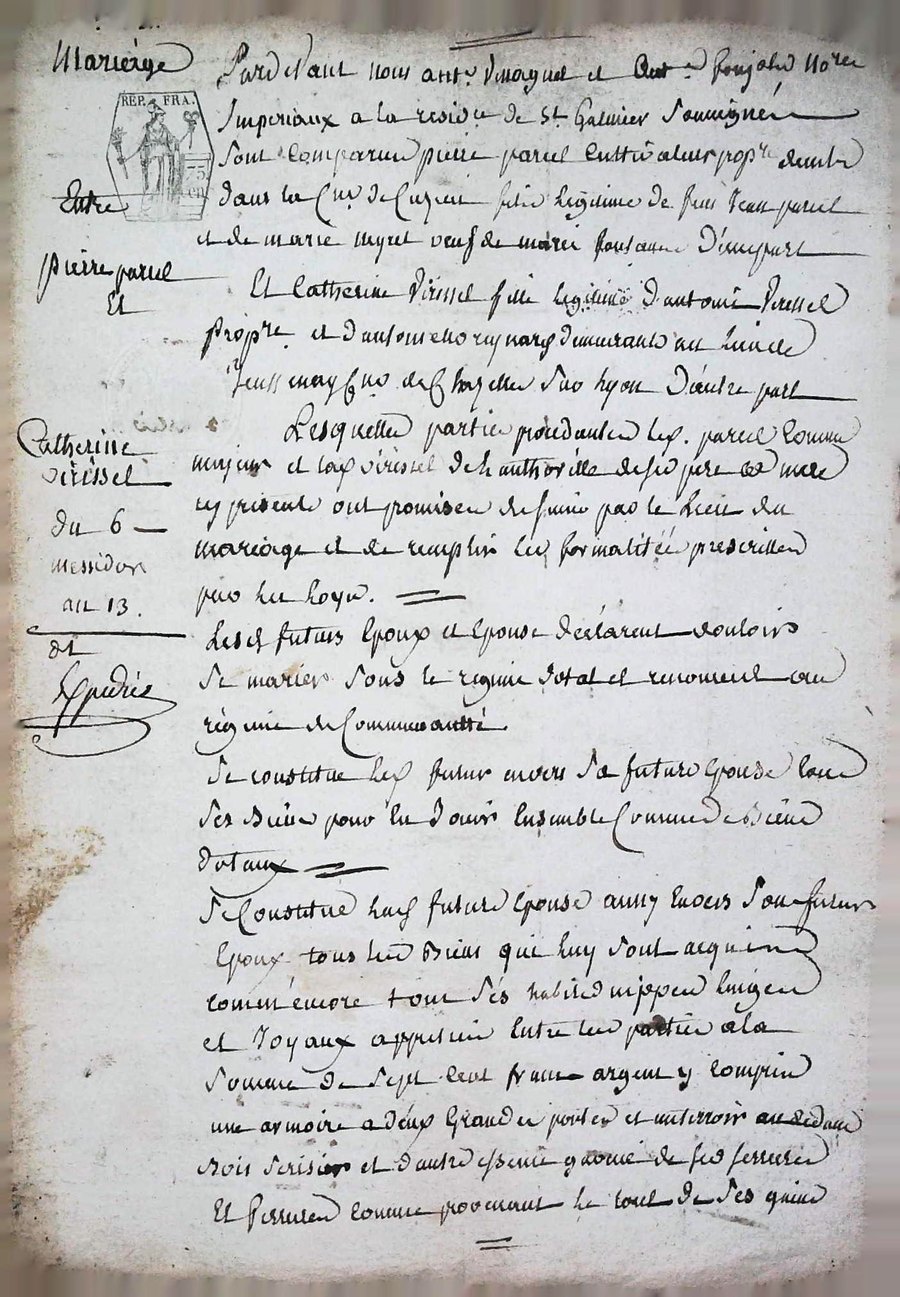 Mariage
Entre
pierre parcel
Et
Catherine
virissel
du 6
messidor
an 13.
et
Expedié
REP. FRA.
75
cen
Pardevant nous ant.e et Ant.e Nores
Imperiaux a la reside de St Galmier Soussignés
Sont Comparus pierre parcel Cultivateur propre demt
dans la Cne de Cuzieu fils legitime de feu Jean parcel
et de marie meyret veuf de marie D'une part
Et Catherine Virissel fille legitime d'antoine Virissel
propre et d'antoinette demeurants au lieu de
Cne de Chazelles Sur Lyon D'autre part
Lesquelles parties procedantes led. parcel Comme
majeur et lad virissel de l'authorité de ses pere et mere
cy presents ont promis de S'unir par le Lien du
mariage et de remplir les formalitéés prescrittes
par les Loyx.
Lesd futurs Epoux et Epouse déclarent vouloir
Se marier Sous le regime dotal et renoncent au
régime de Communautté
Se constitue led futur envers Sa future Epouse tous
Ses Biens pour En Jouir Ensemble Comme de Biens
dotaux
Se Constitue lad future Epouse aussy Envers Son futur
Epoux tous les Biens qui luy Sont acquis
comm'encore tous Sés habits nippes linges
et Joyaux appreciés Entre les parties a la
Somme de Sept Cent francs argent y Compris
une armoire a déux Grandes portes et un tirroir au dedans
Bois Serisier et d'autre essence garnie de Ses ferrures
Et Serrures Comme provenant le tout de Ses gains